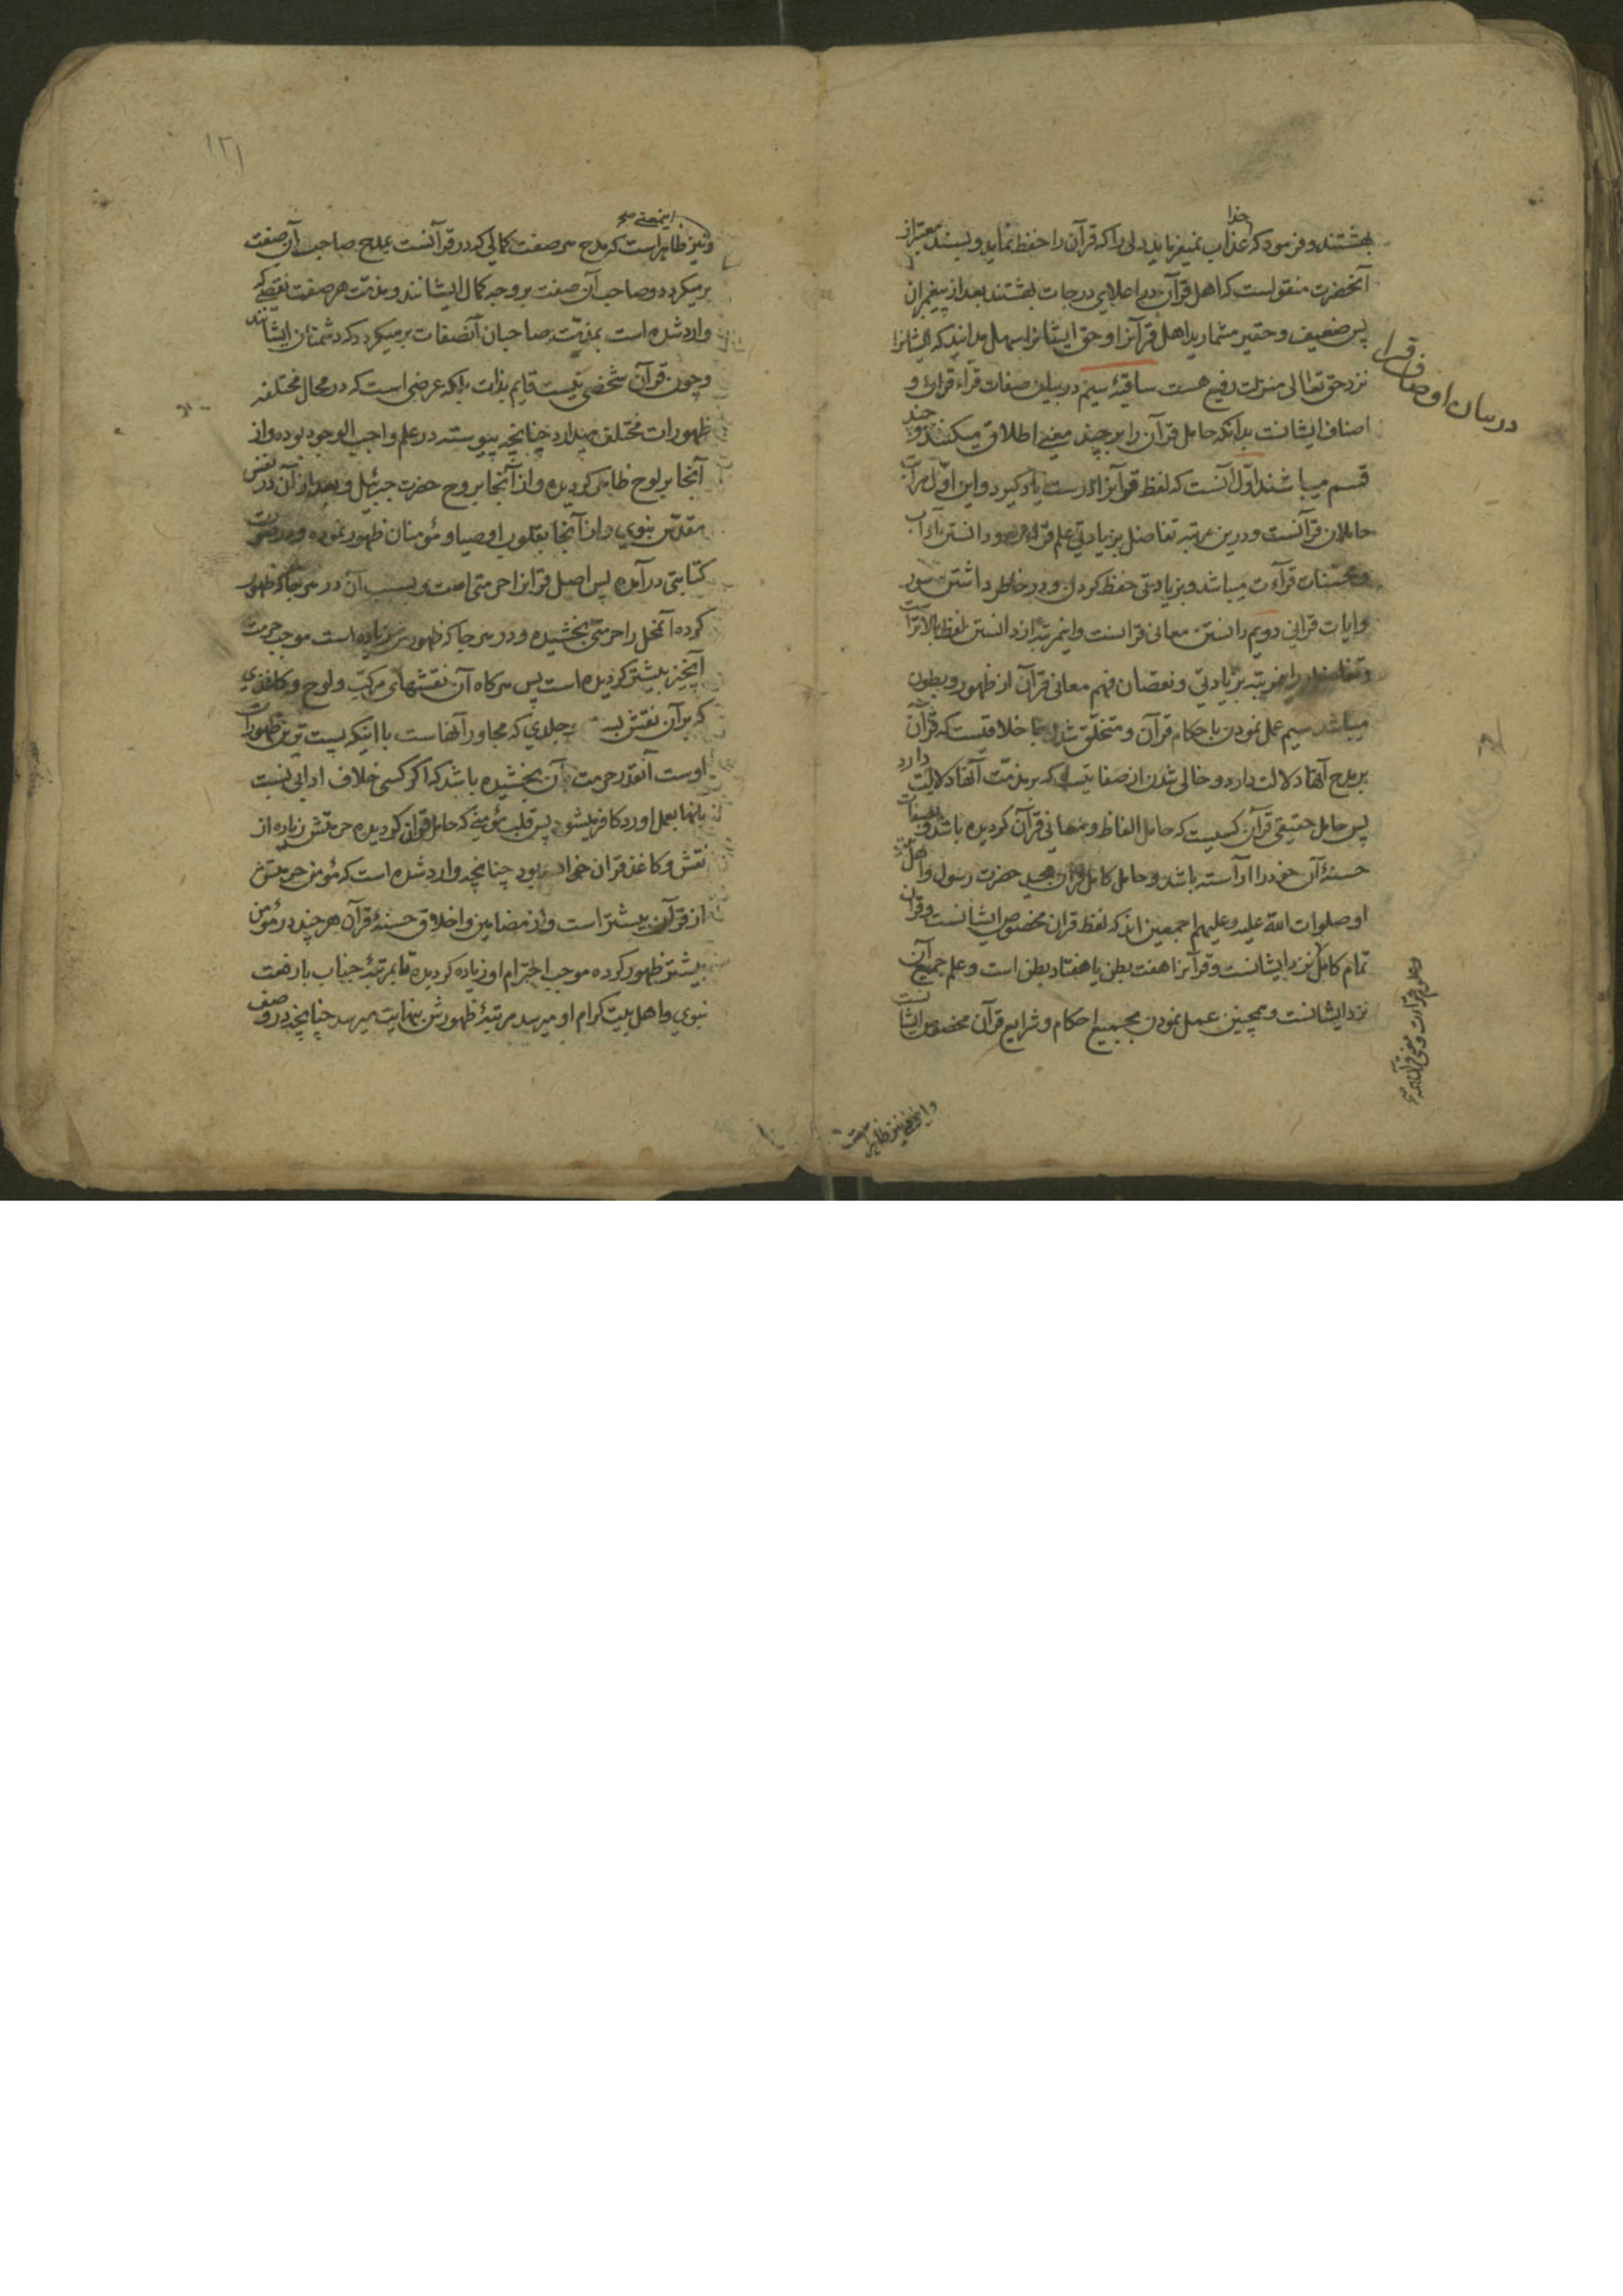 بهشتند و فرمود که خدا عذاب نمیفرماید دلی را که قرآن را حفظ نماید و بسند معتبر از
آنحضرت منقولست که اهل قرآن در اعلای درجات بهشتند بعد از پیغمبران
پس ضعیف و حقیر مشمارید اهل قرآنرا و حق ایشانرا سهل مدانید که ایشانرا
نزد حق تعالی منزلت رفیع هست ساقیهٔ سیم در بیان صفات قراء قرآن و
اصناف ایشانست بدانکه حامل قرآن را بر چند معنی اطلاق میکنند و چند
قسم میباشند اول آنست که لفظ قرآنرا درست یاد گیرد و این اول مراتب
حاملان قرآنست و درین مرتبه تفاضل بزیادتی علم قرائت و دانستن آداب
و محسنات قرآءت میباشد و بزیادتی حفظ کردن و در خاطر داشتن سور
و ایات قرانی دویم دانستن معانی قرانست و اینمرتبه از دانستن لفظ بالاتر است
و تفاضل در اینمرتبه بزیادتی و نقصان فهم معانی قرآن از ظهور و بطون
میباشد سیم عمل نمودن باحکام قرآن و متخلق شدن باخلاقیست که قرآن
بر مدح آنها دلالت دارد و خالی شدن از صفاتیست که بر مذمت آنها دلالت دارد
پس حامل حقیقی قرآن کسیست که حامل الفاظ و معانی قرآن گردیده باشد و بصفات
حسنهٔ آن خود را آراسته باشد و حامل کامل قرآن مجید حضرت رسول و اهل بیت
او صلوات الله علیه و علیهم اجمعین اند که لفظ قران مخصوص ایشانست و قران
تمام کامل نزد ایشانست و قرآنرا هفت بطن یا هفتاد بطن است و علم جمیع آن
نزد ایشانست و همچنین عمل نمودن بجمیع احکام و شرایع قرآن مخصوص ایشانست
در بیان اوصاف قرا
و این معنی نیز ظاهر است
و نیز اینمعنی ظاهر است که مدح هر صفت کمالی که در قرآنست بمدح صاحب آن صفت
برمیگردد و صاحب آن صفت بر وجه کمال ایشانند و مذمت هر صفت نقصی که
وارد شده است بمذمت صاحبان آنصفات برمیگردد که دشمنان ایشانند
و چون قرآن شخصی نیست قایم بذات بلکه عرضی است که در محال مختلفه
ظهورات مختلف میدارد چنانچه پیوسته در علم واجب الوجود بوده و از
آنجا بر لوح ظاهر گردیده و از آنجا بروح حضرت جبرئیل و بعد از آن در نفس
مقدس نبوی و از آنجا بقلوب اوصیا و مؤمنان ظهور نموده و در صورت
کتابتی درآمده پس اصل قرانرا حرمتی است و بسبب آن در هر جا که ظهور
کرده آنمحل را حرمتی بخشیده و در هر جا که ظهورش زیاده است موجب حرمت
آنچیز بیشتر گردیده است پس هرگاه آن نقشهای مرکب و لوح و کاغذی
که بر آن نقش بسته و جلدی که مجاور آنهاست با اینکه پست ترین ظهورات
اوست آنقدر حرمت بآن بخشیده باشد که اگر کسی خلاف ادابی نسبت
بانها بعمل اورد کافر میشود پس قلب مؤمنی که حامل قرآن گردیده حرمتش زیاده از
نقش و کاغذ قران خواهد بود چنانچه وارد شده است که مؤمن حرمتش
از قرآن بیشتر است و از مضامین و اخلاق حسنهٔ قرآن هر چند در مؤمن
بیشتر ظهور کرده موجب احترام او زیاده گردیده تا بمرتبهٔ جناب با رفعت
نبوی و اهل بیت کرام او میرسد مرتبهٔ ظهورش بنهایت میرسد چنانچه در وصف
۱۲۱